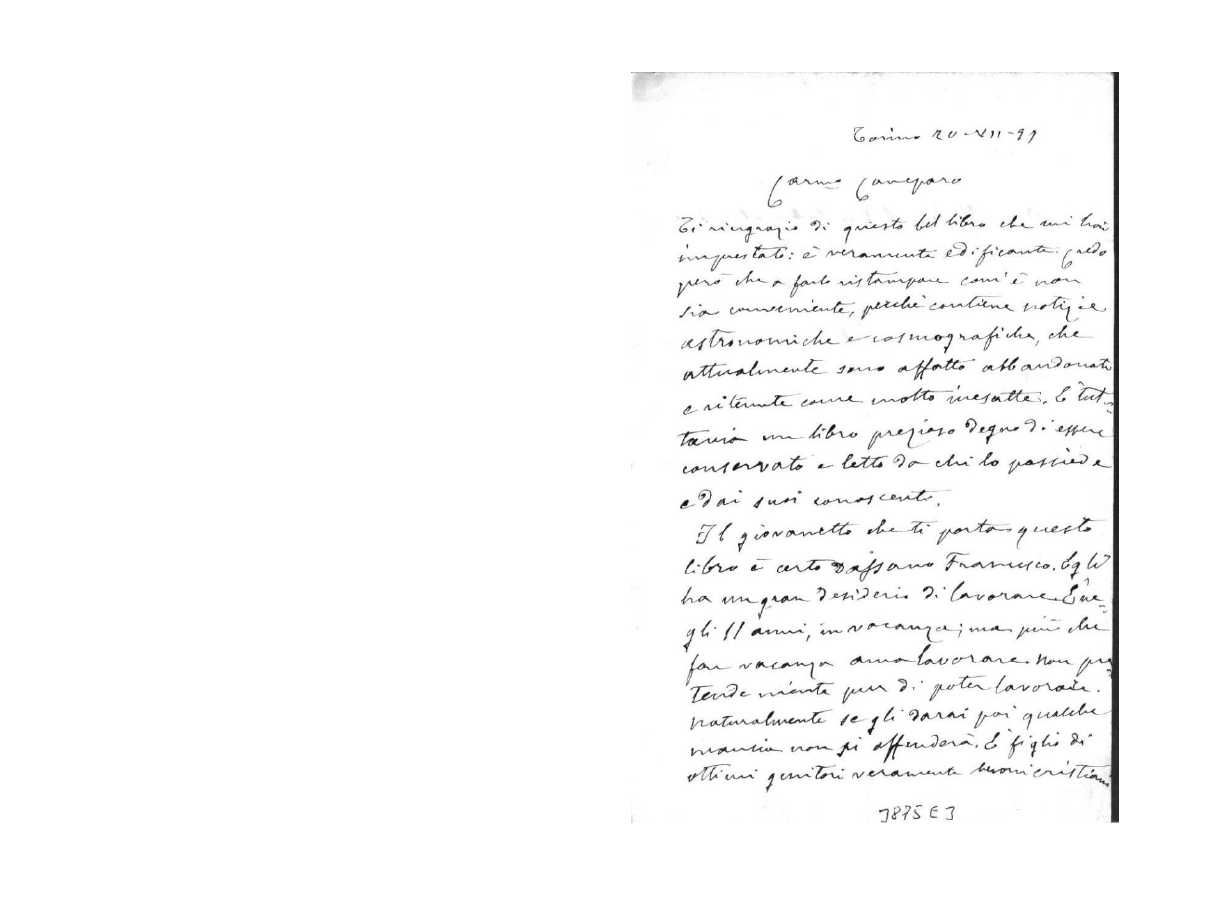 Torino 20-VII-91
Carmo Caneparo
Ti ringrazio di questo bel libro che mi hai
imprestato: è veramente edificante. Credo
però che a farlo ristampare com'è non
sia conveniente, perchè contiene notizie
astronomiche e cosmografiche, che
attualmente sono affatto abbandonate
e ritenute come molto inesatte. È tut-
tavia un libro prezioso degno di essere
conservato e letto da chi lo possiede
e dai suoi conoscenti.
Il giovanetto che ti porta questo
libro è certo Dassano Francesco. Egli
ha un gran desiderio di lavorare. È ne-
gli 11 anni, in vacanza; ma più che
far vacanza ama lavorare. Non pre-
tende niente pur di poter lavorare.
Naturalmente se gli darai poi qualche
mancia non si offenderà. È figlio di
ottimi genitori veramente buoni cristiani
3875 E 3